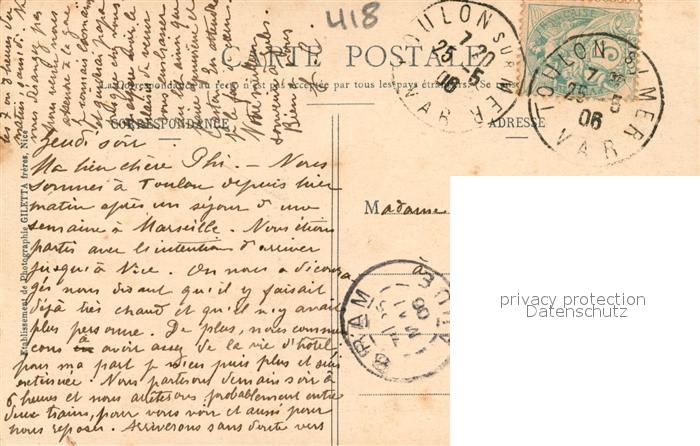 418
CARTE POSTALE
La Correspondance au recto n'est pas acceptée par tous les pays étrangers. Se
CORRESPONDANCE
ADRESSE
TOULON SUR MER
7 20
25 - 5
06
VAR
TOULON S/MER
7
25 - 5
06
VAR
Jeudi soir.
Ma bien chère Phi. — Nous
sommes à Toulon depuis hier
matin après un séjour d'une
semaine à Marseille. Nous étions
partis avec l'intention d'arriver
jusqu'à Nice. On nous a découra
gés nous disant qu'il y faisait
déjà très chaud et qu'il n'y avait
plus personne. De plus, nous commen
cons à avoir assez de la vie d'hôtel
pour ma part je n'en puis plus et suis
éreintée. Nous partirons demain soir à
6 heures et nous arrêterons probablement entre
deux trains, pour vous voir et aussi pour
nous reposer. Arriverons sans doute vers
les 7 ou 8 heures du
matin samedi. Ne
vous dérangez pas
Madame
à
BRAM
AUDE
MAI
06
Etablissement de Photographie GILETTA frères, Nice
privacy protection
Datenschutz